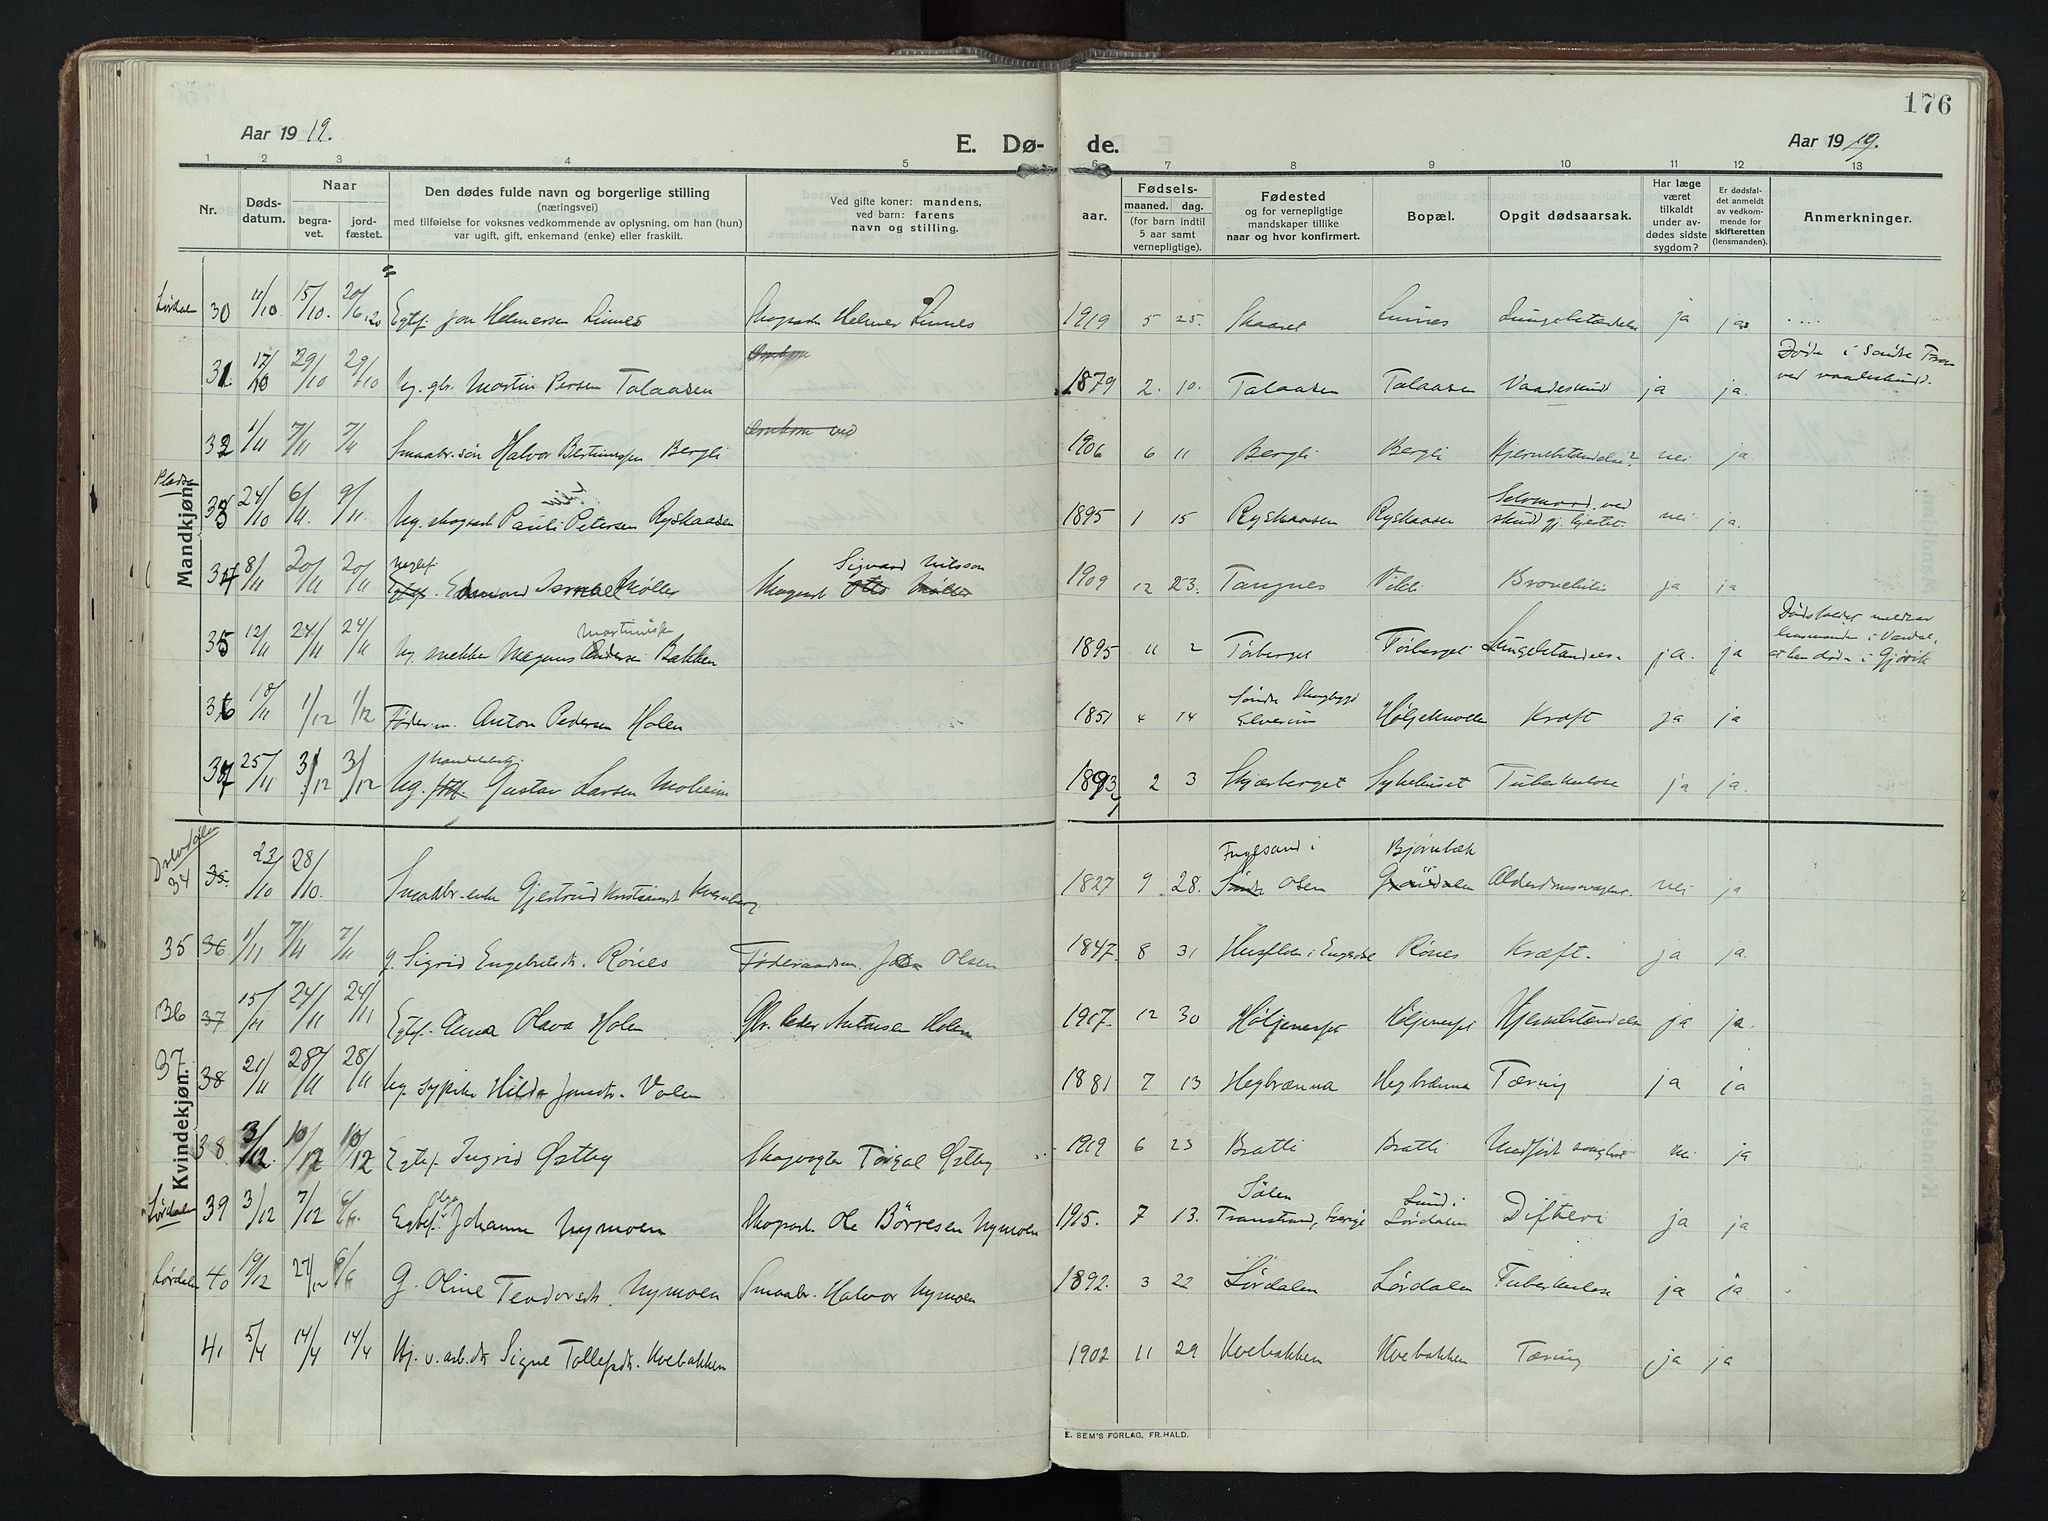 176
Aar 1919.
E. Døde.
Aar 1919.
1 2 3 4 5 6 7 8 9 10 11 12 13
Nr.
Dødsdatum.
Naar
begravet.
jordfæstet.
Den dødes fulde navn og borgerlige stilling
(næringsvei)
med tilføielse for voksnes vedkommende av oplysning, om han (hun)
var ugift, gift, enkemand (enke) eller fraskilt.
Ved gifte koner: mandens,
ved barn: farens
navn og stilling.
aar.
Fødsels-
maaned. dag.
(for barn indtil
5 aar samt
vernepligtige).
Fødested
og for vernepligtige
mandskaper tillike
naar og hvor konfirmert.
Bopæl.
Opgit dødsaarsak.
Har læge
været
tilkaldt
under av-
dødes sidste
sygdom?
Er dødsfal-
det anmeldt
av vedkom-
mende for
skifteretten
(lensmanden).
Anmerkninger.
Mandkjøn.
Lørdalen 30 11/10 15/10 20/6 20 Egtef. Jon Helmersen Linnes Skogsarb. Helmer Linnes 1919 5 25. Skaaret Linnes Lungebetændelse ja ja
31 17/10 29/10 29/10 Ug. gbr. Martin Persen Talaasen 1879 2. 10. Talaasen Talaasen Vaadeskudd ja ja. Døde i Søndre
ved vaadeskud.
32 1/11 7/11 7/11 Smaabr. søn Halvor Bergli 1906 6 11 Bergli Bergli Hjernebetændelse? nei ja
Pladsen 33 24/10 6/11. 9/11. Ug. skogsarb. Pauli Petersen Ryskaasen 1895 1 15 Ryskaasen Ryskaasen Selvmord ved
skudd gj. hjertet. nei ja.
34 8/11 20/11 20/11 Uegtef. Edmund Møller Skogsarb. Sigvard Nilsson 1909 12 23. Tangnes Bronchitis ja ja
35 12/11 24/11 24/11 Ug. snekker Magnus Martinius Bakken 1895 11 2 Tørberget Tørberget Lungebetændelse ja. ja Dødsfaldet meldt av
lensmanden i Vardal,
at han døde i Gjøvik
36 18/11 1/12 1/12 Føderm. Anton Pedersen Holen 1851 4 14 Søndre Skogbygd
Elverum Høljeknollen Kræft ja ja
37 25/11 3/12 3/12 Ug. handelsbetj. Gustav Larsen Moheim 1893 2 3 Skjærberget Sykehuset Tuberkulose ja ja.
Kvindekjøn.
34 35. 23/10 28/10. Smaabr. enke Gjertrud Kristiansdt. Kvernberg 1827 9 28. Fuglsand i
Osen Bjørnbæk Alderdomssvaghet nei ja
35 36 1/11 7/11 7/11 g. Sigrid Engebretsdt. Rønes Føderaadsm. Jon Olsen 1847. 8 31 Husfloen i Engerdal Rønes Kræft. ja ja.
36 37 15/11 24/11 24/11 Egtef. Anna Olava Holen Gbr. Peder Antonsen Holen 1917. 12 30 Høljeneset Høljeneset Hjernebetændelse ja ja.
37 38 21/11 28/11 28/11 Ug. sypike Hilda Jonsdt. Volen 1881 7 13 Hegbrænna Hegbrænna Tæring ja ja
38. 3/12. 10/12 10/12 Egtef. Ingrid Østby Skogvogter Torgal Østby 1919 6 23 Bratli Bratli Medfødt nei ja
Lørdalen 39 3/12 7/12 6/6. Egtef. Olga Johanne Nymoen Skogsarb. Ole Børresen Nymoen 1915. 7 13. Sälen
Transtrand, Sverige Lund i
Lørdalen Difteri ja ja
Lørdalen 40 19/12 27/12 6/6 G. Oline Teodorsdt. Nymoen Smaabr. Halvor Nymoen 1892. 3 22 Lørdalen Lørdalen Tuberkulose ja ja
41 5/4 14/4 14/4 Hj. v. arb. dt. Signe Tollefsdt. Kvebakken 1902 11 29 Kvebakken Kvebakken Tæring ja ja
E. SEM'S FORLAG, FR.HALD.